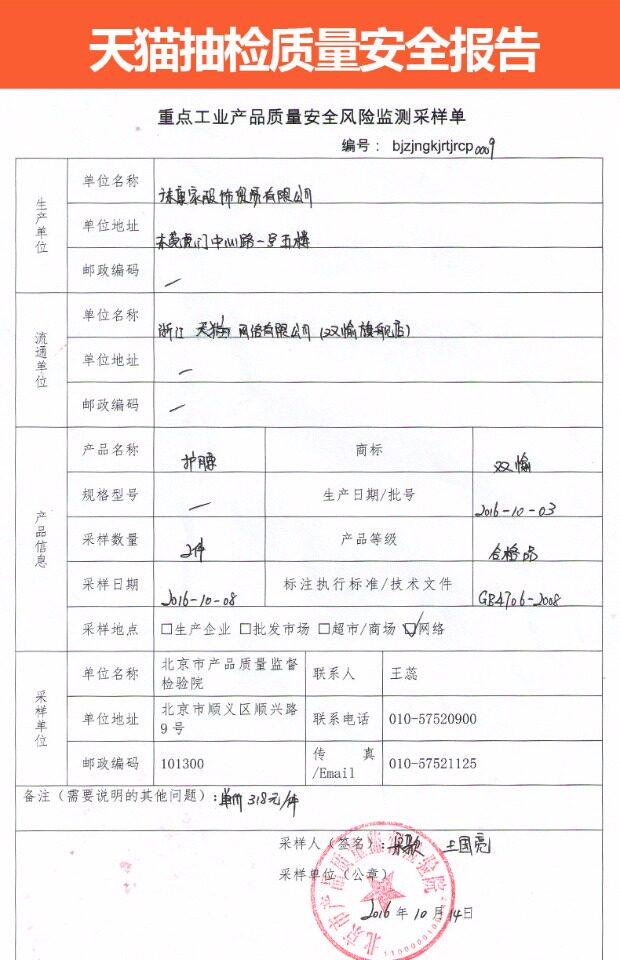 天猫抽检质量安全报告
重点工业产品质量安全风险监测采样单
编号： bjzjngkjrtjrcp0009
生产单位
单位名称
服饰贸易有限公司
单位地址
东莞虎门中心路一号五楼
邮政编码 —
流通单位
单位名称
浙江 天猫 网络有限公司（双愉旗舰店）
单位地址 —
邮政编码 —
产品信息
产品名称 护腰 商标 双愉
规格型号 — 生产日期/批号 2016-10-03
采样数量 2件 产品等级 合格品
采样日期 2016-10-08 标注执行标准/技术文件 GB4706-2008
采样地点 □生产企业 □批发市场 □超市/商场 ☑网络
采样单位
单位名称 北京市产品质量监督检验院 联系人 王蕊
单位地址 北京市顺义区顺兴路9号 联系电话 010-57520900
邮政编码 101300 传真/Email 010-57521125
备注（需要说明的其他问题）：单价 318元/件
采样人（签名）： 王国亮
采样单位（公章）
2016 年 10 月 14 日
北京市产品质量监督检验院